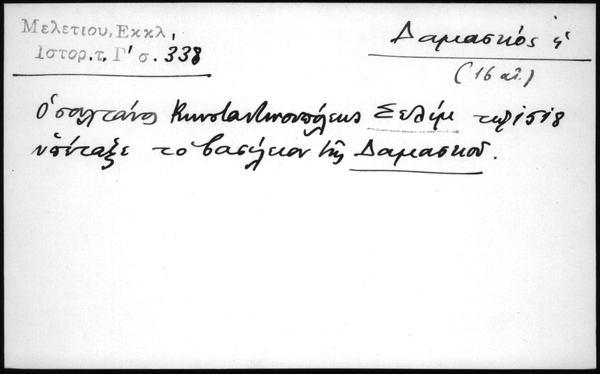 Μελετίου, Εκκλ,
Ιστορ.τ, Γ' σ. 338
Δαμασκός ἡ
(16 αἰ.)
Ὁ σουλτάνος Κωνσταντινουπόλεως Σελήμ τῷ 1518
ὑπέταξε το βασίλειον τῆς Δαμασκοῦ.